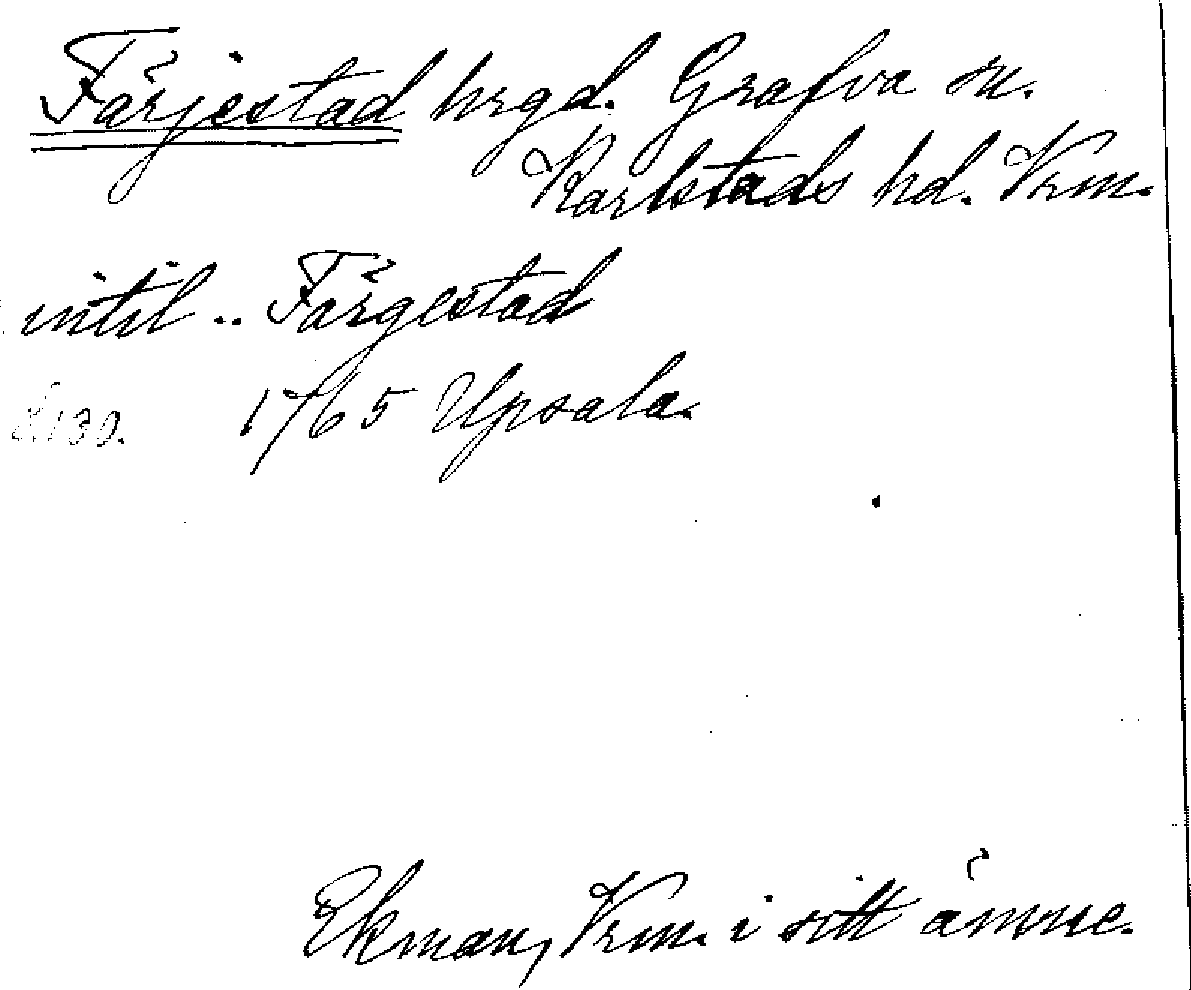 Färjestad hrgd. Grafva sn.
Karlstads hd. Vrm.
intil .. Färgestad
1765 Upsala.
Ekman, Vrm. i sitt ämne.